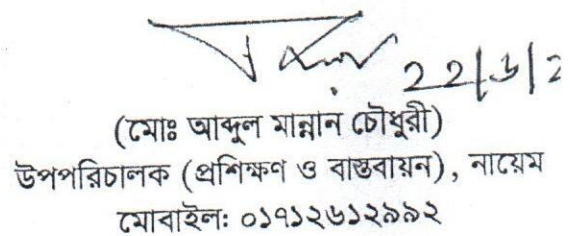 22/6/2
(মোঃ আব্দুল মান্নান চৌধুরী)
উপপরিচালক (প্রশিক্ষণ ও বাস্তবায়ন), নায়েম
মোবাইলঃ ০১৭১২৬১২৯৯২